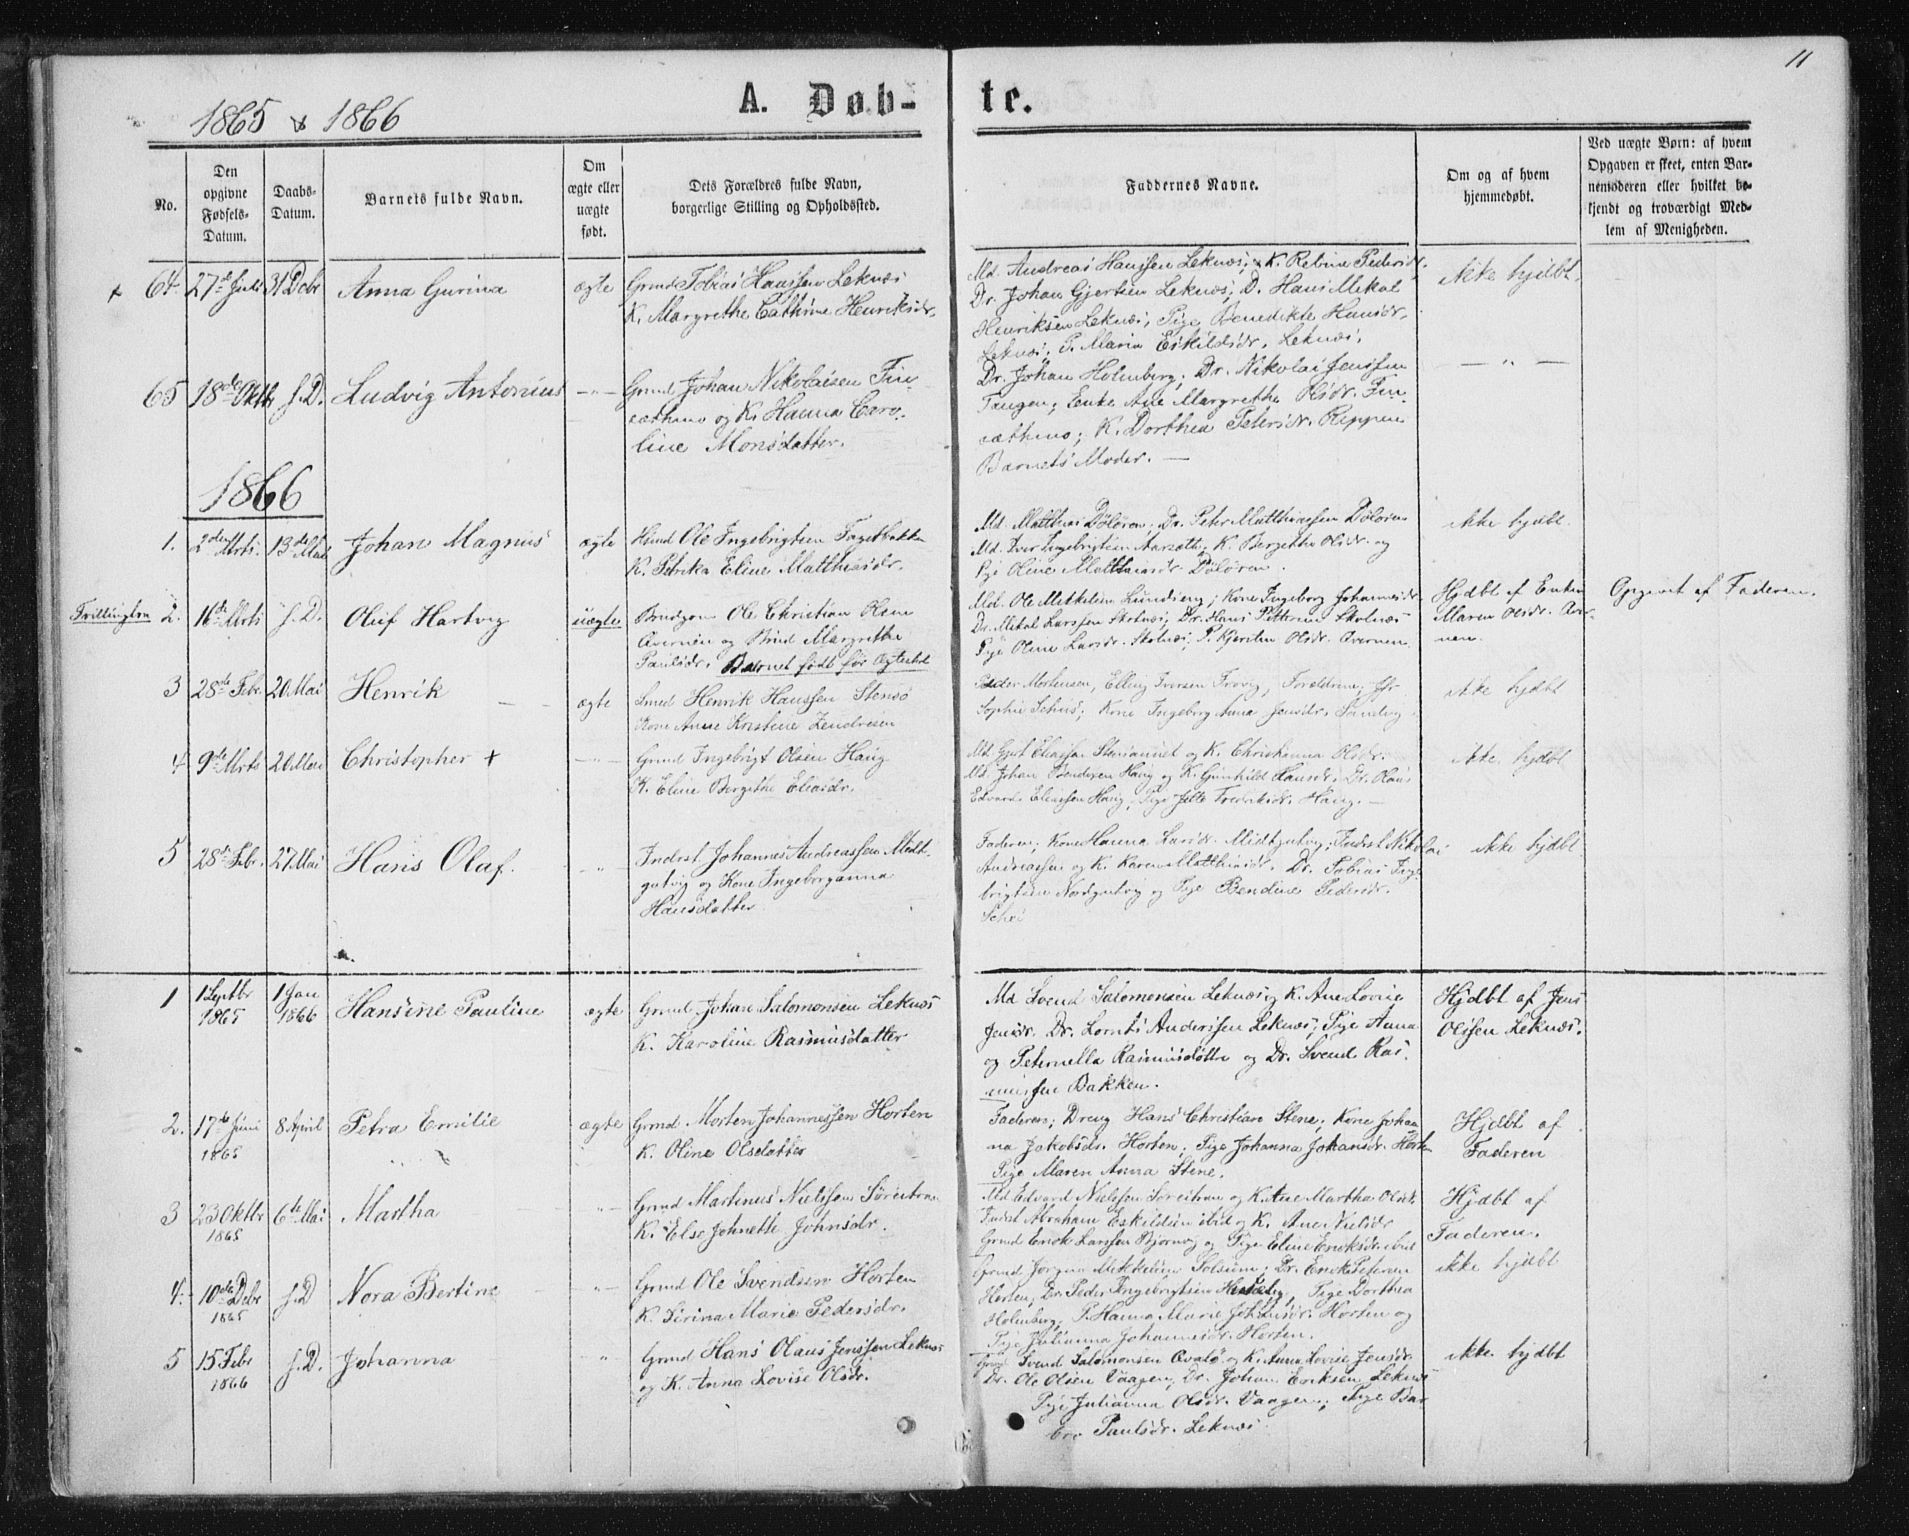 11
1865 & 1866
A. Døb-te.
No.
Den opgivne Fødsels-Datum.
Daabs-Datum.
Barnets fulde Navn.
Om ægte eller uægte født.
Dets Forældres fulde Navn, borgerlige Stilling og Opholdssted.
Faddernes Navne.
Om og af hvem hjemmedøbt.
Ved uægte Børn: af hvem Opgaven er skeet, enten Barnemoderen eller hvilket bekjendt og troværdigt Medlem af Menigheden.
64. 27de Juli 31 Debr Anna Gurina ægte
Grmd Tobias Hanssen Leknæs
K. Margrethe Cathrine Henriksdr.
Md. Andreas Hanssen Leknæs, K. Pedersdr.
Dr. Johan Gjertsen Leknæs; D. Hans Mekal
Henriksen Leknæs; Pige Benedikte Hansdr.
Leknæs; P. Maria Eskildsdr. Leknæs.
ikke hjdbt.
65 18de Oktbr s.D. Ludvig Antonius — " —
Grmd Johan Nikolaisen
og K. Hanna Caro-
line Monsdatter.
Dr. Johan Holmberg; Dr. Nikolai Jenssen
Tangen; Enke Ane Margrethe Olsdr.
K. Dorthea Petersdr.
Barnets Moder. —
— " —
1866
1. 2den Mrts. 13de Mai Johan Magnus ægte
Ole Ingebrigtsen
K. Petrika Eline Matthiasdr.
Md. Matthias Døløren; Dr. Peter Matthiassen Døløren
Md. Iver Ingebrigtsen K. Bergitha Olsdr. og
Pige Oline Matthiasdr. Døløren.
ikke hjdbt.
2. 16de Mrts s.D. Oluf Hartvig uægte
Brudgom Ole Christian Olsen
og Brud Margrethe
Paulsdr. Barnet født før Ægteskab
Md. Ole Mikkelsen Lundseng; Kone Ingeborg Johannesdr.
Dr. Mekal Larssen Skotnæs; Dr. Hans Pettersen Skotnæs
Pige Oline Larsdr. Skotnæs; P. Kjersten Olsdr.
Hjdbt af Enken
Maren Olsdr.
Opgivet af Faderen.
3 28de Febr. 20 Mai Henrik ægte
Smed Henrik Hanssen Stensø
Kone Anne Kristine Zendresen
Peder Mortensen, Elling Iversen Forældrene; Jfr
Sophie Kone Ingeborg Anna Jensdr. Sandvig
ikke hjdbt
4 9de Mrts 20 Mai Christopher + — " —
Grmd Ingebrigt Olsen Haug
K. Eline Bergithe Eliasdr.
Md. Gjert Eliassen og K. Christianna Olsdr.
Md. Johan Haug og K. Gunhild Hansdr. Dr. Olaus
Edvard Eliassen Haug, Pige Fredriksdr. Haug. —
ikke hjdbt
5 28de Febr. 27 Mai Hans Olaf. — " —
Inderst Johannes Andreassen Midt-
gutvig og Kone Ingeborganna
Hansdatter
Faderen; Kone Hanna Larsdr. Midtgutvig; Inderst Nikolai
Andreassen og K. Karen Matthiasdr. Dr. Tobias Inge-
brigtsen Nordgutvig og Pige Bendine Pedersdr.
ikke hjdbt
1 1 Septbr 1865 1 Jan 1866 Hansine Pauline ægte
Grmd Johan Salomonsen Leknæs
K. Karoline Rasmusdatter
Md Svend Salomonsen Leknæs og K. Ane Lovise
Jensdr. Dr. Lornts Anderssen Leknæs; Pige Anna
og Peternella Rasmusdøttre og Dr. Svend Ras-
mussen Bakken.
Hjdbt af Jens
Olssen Leknæs.
2. 17de Juni 1865 8 April Petra Emilie ægte
Grmd Morten Johannessen Horten
K. Oline Olsdatter
Faderen; Dreng Hans Christian Stene; Kone Johan
na Jakobsdr. Horten; Pige Johanna Johansdr. Horten
Pige Maren Anna Stene.
Hjdbt af
Faderen
3 23 Oktbr 1865 6te Mai Martha — " —
Grmd Martinus Nielssen
K. Else Johnette Johnsdr.
Md Edvard Nielssen og K. Ane Martha Olsdr.
Inderst Abraham Eskildsen ibid og K. Ane Nielsdr
Grmd Enok Larssen Bjørnvig og Pige Eline Enoksdr. ibid
Hjdbt af
Faderen.
4. 10de Debr 1865 s.D Nora Bertine — " —
Grmd Ole Svendsen Horten
K. Sirina Marie Pedersdr.
Grmd Jørgen Mikkelsen Solsum; Dr. Enok Petersen
Horten; Dr. Peder Ingebrigtsen Pige Dorthea
Holmberg; P. Hanna Marie Horten og
Pige Julianna Johannesdr. Horten.
ikke hjdbt
5 15 Febr 1866 s.D. Johanna "
Grmd Hans Olaus Jenssen Leknæs
og K. Anna Lovise Olsdr.
Grmd Svend Salomonsen Qvalø og K. Anna Lovise Jensdr.
Dr. Ole Olsen Vaagen; Dr. Johan Eriksen Leknæs
Pige Julianna Olsdr. Vaagen; Pige Bar
bro Paulsdr. Leknæs
ikke hjdbt